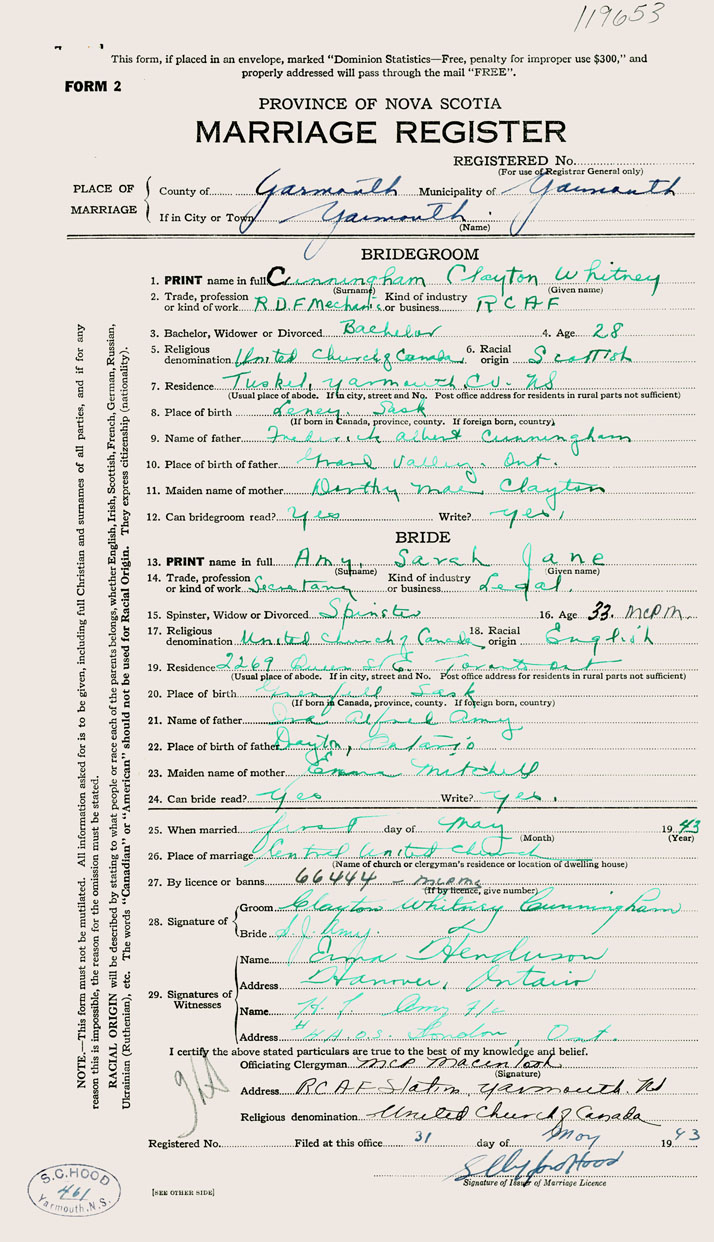 119653
This form, if placed in an envelope, marked "Dominion Statistics—Free, penalty for improper use $300," and
properly addressed will pass through the mail "FREE".
FORM 2
PROVINCE OF NOVA SCOTIA
MARRIAGE REGISTER
REGISTERED No.
(For use of Registrar General only)
PLACE OF MARRIAGE
County of Yarmouth Municipality of Yarmouth
If in City or Town Yarmouth
(Name)
BRIDEGROOM
1. PRINT name in full Cunningham Clayton Whitney
(Surname) (Given name)
2. Trade, profession or kind of work R.D.F Mechanic Kind of industry or business R C A F
3. Bachelor, Widower or Divorced Bachelor 4. Age 28
5. Religious denomination United Church of Canada 6. Racial origin Scottish
7. Residence Tusket, Yarmouth Co. NS
(Usual place of abode. If in city, street and No. Post office address for residents in rural parts not sufficient)
8. Place of birth Leney, Sask
(If born in Canada, province, county. If foreign born, country)
9. Name of father Frederick Albert Cunningham
10. Place of birth of father Grand Valley, Ont.
11. Maiden name of mother Dorthy Mae Clayton
12. Can bridegroom read? Yes Write? Yes,
BRIDE
13. PRINT name in full Amy, Sarah Jane
(Surname) (Given name)
14. Trade, profession or kind of work Secretary Kind of industry or business Legal
15. Spinster, Widow or Divorced Spinster 16. Age 33. McPM.
17. Religious denomination United Church of Canada 18. Racial origin English
19. Residence 2269 Queen St. E. Toronto Ont
(Usual place of abode. If in city, street and No. Post office address for residents in rural parts not sufficient)
20. Place of birth Grenfell Sask
(If born in Canada, province, county. If foreign born, country)
21. Name of father Ira Alfred Amy
22. Place of birth of father Dayton, Ontario
23. Maiden name of mother Emma Mitchell
24. Can bride read? Yes Write? Yes.
25. When married first day of May 1943
(Month) (Year)
26. Place of marriage Central United Church
(Name of church or clergyman's residence or location of dwelling house)
27. By licence or banns 66444 - McPM
(If by licence, give number)
28. Signature of
Groom Clayton Whitney Cunningham
Bride S.J. Amy.
29. Signatures of Witnesses
Name Erma Henderson
Address Hanover, Ontario
Name H. Amy F/c
Address London, Ont.
I certify the above stated particulars are true to the best of my knowledge and belief.
Officiating Clergyman McP MacIntosh
(Signature)
Address RCAF Station, Yarmouth. NS
Religious denomination United Church of Canada
Registered No. Filed at this office 31 day of May 1943
Signature of Issuer of Marriage Licence
[SEE OTHER SIDE]
S.C. HOOD
461
Yarmouth, N.S.
NOTE.—This form must not be mutilated. All information asked for is to be given, including full Christian and surnames of all parties, and if for any
reason this is impossible, the reason for the omission must be stated.
RACIAL ORIGIN will be described by stating to what people or race each of the parents belongs, whether English, Irish, Scottish, French, German, Russian,
Ukrainian (Ruthenian), etc. The words "Canadian" or "American" should not be used for Racial Origin. They express citizenship (nationality).